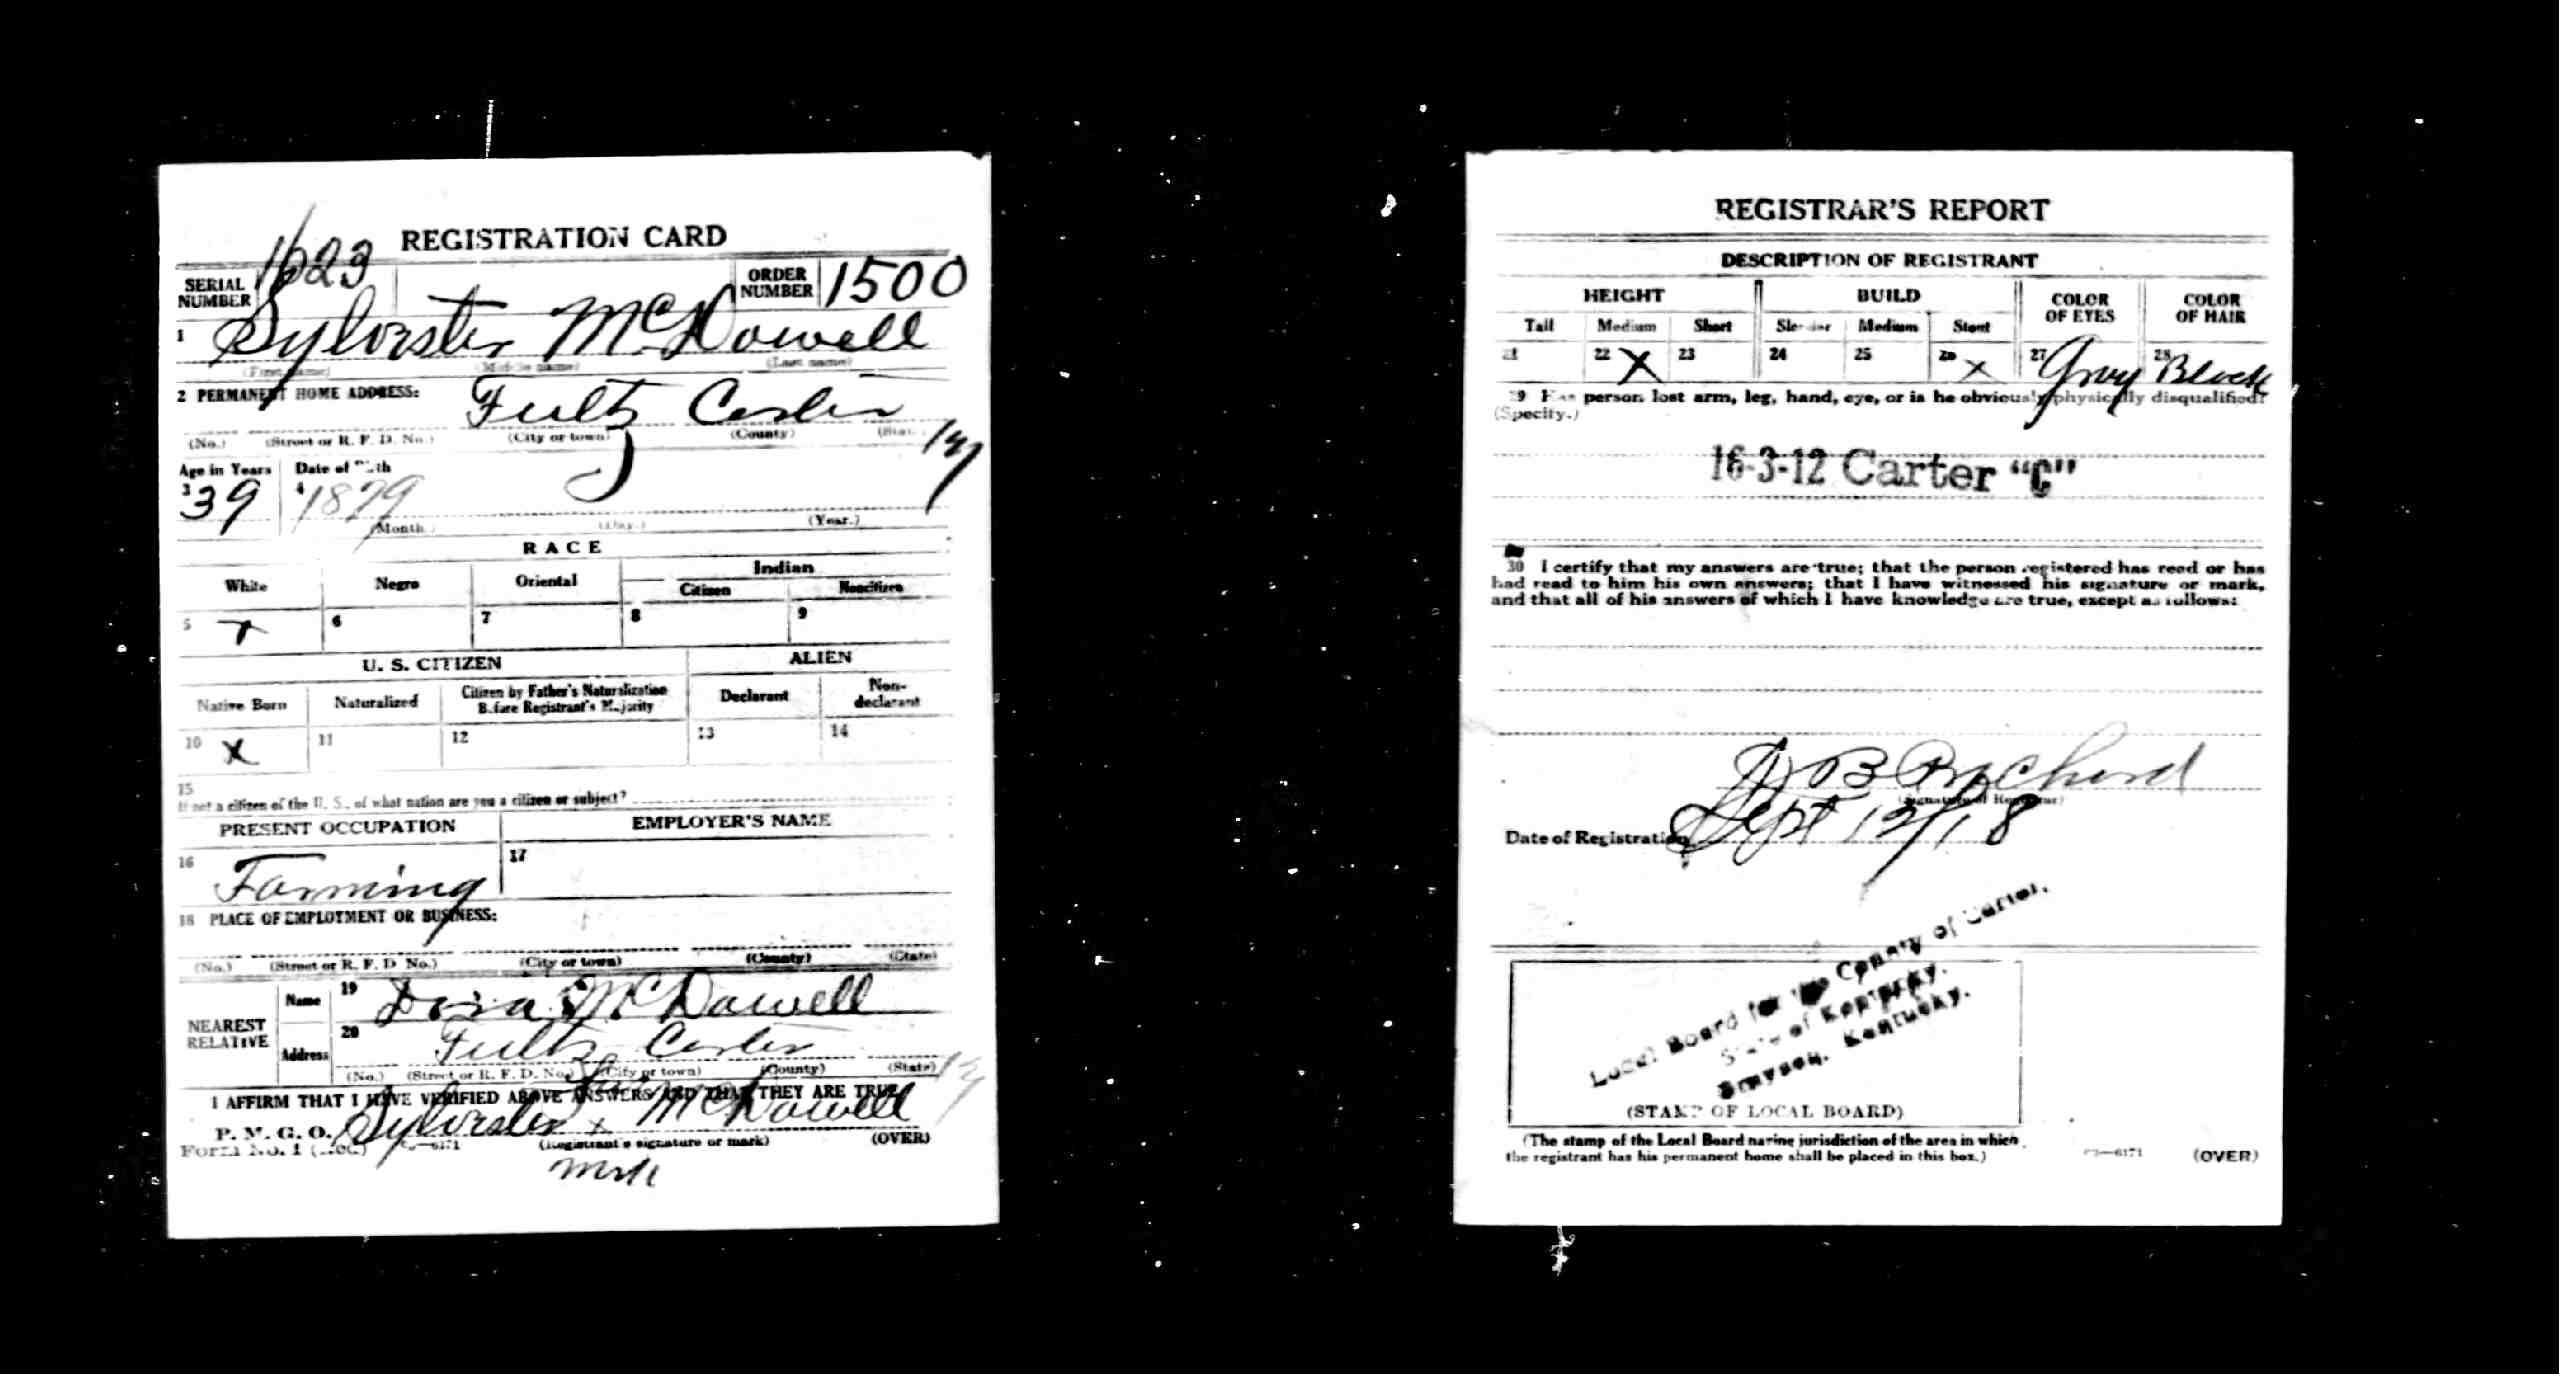 REGISTRATION CARD
SERIAL NUMBER 1623 ORDER NUMBER 1500
1 Sylvester McDowell
(First name) (Middle name) (Last name)
2 PERMANENT HOME ADDRESS:
Fultz Carter Ky
(No.) (Street or R. F. D. No.) (City or town) (County) (State)
Age in Years Date of Birth
3 39 4 1879
(Month.) (Day.) (Year.)
RACE
White Negro Oriental Indian
Citizen Noncitizen
5 x 6 7 8 9
U. S. CITIZEN ALIEN
Native Born Naturalized Citizen by Father's Naturalization Before Registrant's Majority Declarant Non-declarant
10 x 11 12 13 14
15
If not a citizen of the U. S., of what nation are you a citizen or subject?
PRESENT OCCUPATION EMPLOYER'S NAME
16 Farming 17
18 PLACE OF EMPLOYMENT OR BUSINESS:
(No.) (Street or R. F. D. No.) (City or town) (County) (State)
NEAREST RELATIVE Name 19 McDowell
Address 20 Fultz Carter Ky
(No.) (Street or R. F. D. No.) (City or town) (County) (State)
I AFFIRM THAT I HAVE VERIFIED ABOVE ANSWERS AND THAT THEY ARE TRUE
P. M. G. O.
Form No. 1 (Red) Sylvester x McDowell
(Registrant's signature or mark) (OVER)
REGISTRAR'S REPORT
DESCRIPTION OF REGISTRANT
HEIGHT BUILD COLOR OF EYES COLOR OF HAIR
Tall Medium Short Slender Medium Stout
21 22 X 23 24 25 26 x 27 Gray 28 Black
29 Has person lost arm, leg, hand, eye, or is he obviously physically disqualified?
(Specify.)
16-3-12 Carter "C"
30 I certify that my answers are true; that the person registered has read or has
had read to him his own answers; that I have witnessed his signature or mark,
and that all of his answers of which I have knowledge are true, except as follows:
(Signature of Registrar)
Date of Registration Sept 12/18
Local Board for the County of Carter,
State of Kentucky.
Grayson, Kentucky.
(STAMP OF LOCAL BOARD)
(The stamp of the Local Board having jurisdiction of the area in which
the registrant has his permanent home shall be placed in this box.)
03—6171 (OVER)